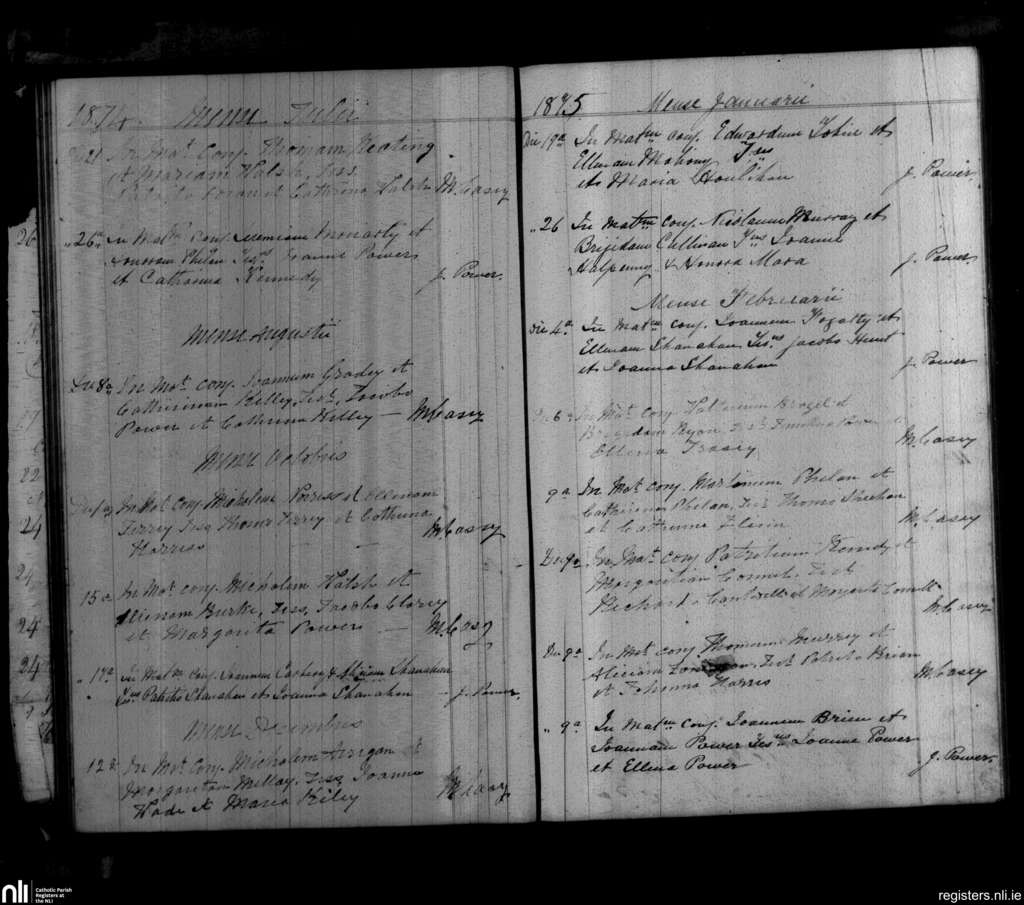 1874. Mense Julii
Die 21 In Mat. Conj. Thomam Keating
et Mariam Walsh, Tess.
et Catherina Walsh M. Casey
" 26a In Matm Conj. et
Honoram Phelan Tesst Joanne Power
et Catharina Kennedy J. Power.
Mense Augustii
Die 8a In Mat. Conj. Joannem Grady et
Catherinam Kelley, Tess. Jacobo
Power et Catherina Kelley — M Casey
Mense Octobris
Die In Mat Conj Micholem et Ellenam
Terrey Tess Thoms Terrey et Catherina
Harriss M Casey
15a In Mat. Conj. Micholem Walsh et
Ellenam Burke, Tess, Jacobo Clarey
et Margarita Power — M. Casey
" 17a In Matm Conj. Joannem & Shanahan
Tess Patritio Shanahan et Joanna Shanahan — J. Power.
Mense Decembris
12a In Mat. Conj. Micholem et
Margaritam Tess Joanne
Wade et Maria Kiley M Casey
1875 Mense Januarii
Die 19a In Matm Conj. Edwardum Tobin et
Ellenam Mahony Tess
et Maria Houlihan J. Power
" 26 In Matm Conj. Nicolaum Murray et
Brigidam Cullinan Tess Joanne
Halpenny & Honora Mara J. Power.
Mense Februarii
Die 4a. In Matm Conj. Joannem Fogarty et
Ellenam Shanahan Tess Jacobo Hunt
et Joanna Shanahan J. Power
Die 6a In Mat. Conj et
Brigidam Ryan, Tess et
Ellena Tracey M. Casey
9a In Mat. Conj. Martinum Phelan et
Catherinam Phelan, Tess Thoms Sheehan
et Catherina M. Casey
Die 9a In Mat. Conj Patritium Kennedy et
Margaritam Connell, Test
Richard Cantwell et Margarita Connell
M. Casey
Die 9a In Mat. Conj Thomam Murrey et
Aliciam Test Patritio Brien
et Johanna Harris M Casey
" 9a In Matm Conj. Joannem Brien et
Joannam Power Tess Joanne Power
et Ellena Power J. Power.
26
17
22
24
24
24
24
9
nli
Catholic Parish
Registers at
the NLI
registers.nli.ie